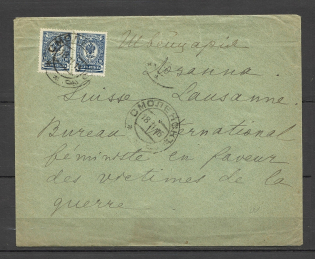 Швейцарія
Лозанна.
Suisse Lausanne.
Bureau International
féministe en faveur
des victimes de la
guerre
СМОЛЕНСК